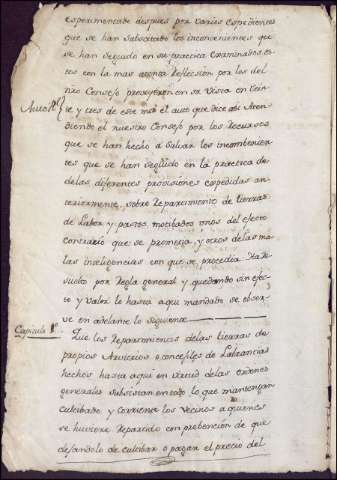 esperimentado despues por varios espedientes
que se han subscitado los inconvenientes que
se han seguido en su practica Examinados es-
tos con la mas atenta Reflecsion por los del
nro Consejo proveyeron en su Vista en Vein-
Auto te y tres de este mes el auto que dice asi Aten-
diendo el nuestro Consejo por los Recursos
que se han hecho a salvar los incombenien-
tes que se han seguido en la practica de
delas diferentes provisiones expedidas an-
teriormente sobre Repartimiento de tierras
de Labor y pastos motibados unos del efecto
contrario que se prometia y otros delas ma-
las inteligencias con que se procedia Ha Re-
suelto por Regla general y quedando sin efec-
to y valor lo hasta aqui mandado se obser-
ve en adelante lo siguiente
Capitulo 1º Que los Repartimientos delas tierras de
propios Arvitrios o concejiles de Labrantias
hechos hasta aqui en virtud delas ordenes
generales subsistan en todo lo que mantengan
cultibado y corriente los Vecinos a quienes
se huviere Repartido con prebencion de que
dejandolo de cultibar o pagar el precio del